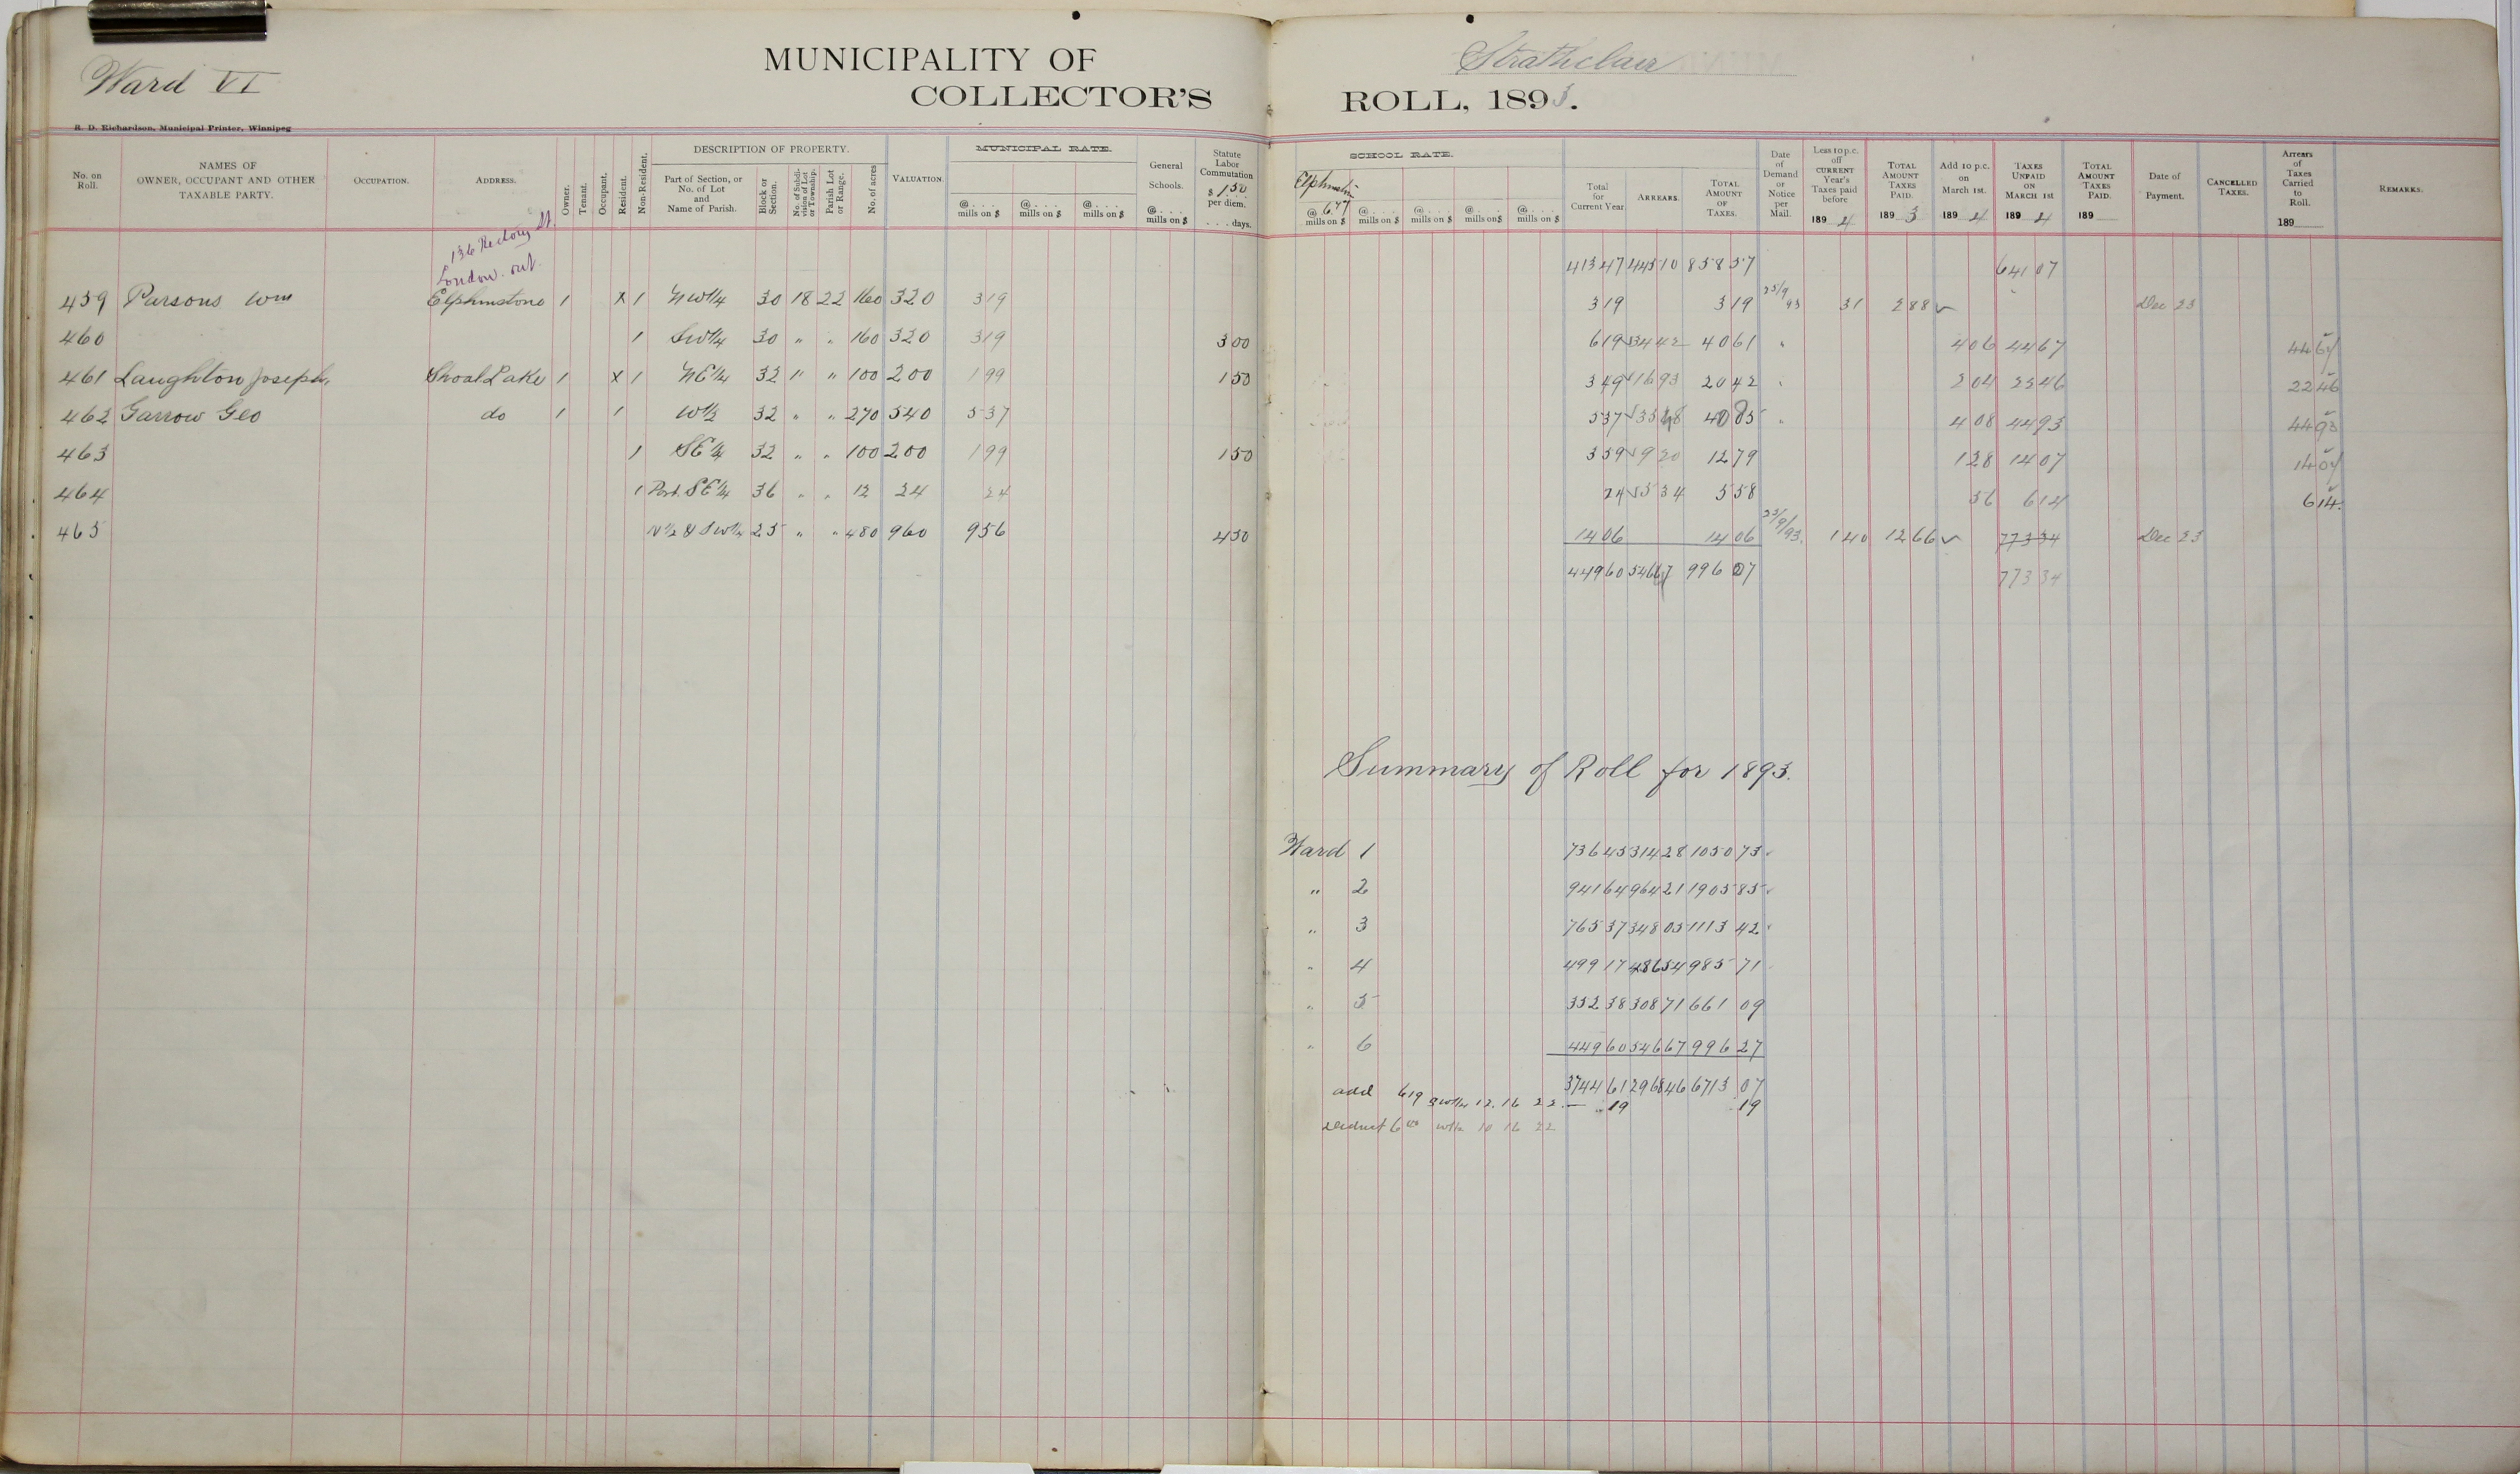 Ward VI
MUNICIPALITY OF Strathclair
COLLECTOR'S ROLL, 1893.
R. D. Richardson, Municipal Printer, Winnipeg
No. on Roll. NAMES OF OWNER, OCCUPANT AND OTHER TAXABLE PARTY. OCCUPATION. ADDRESS. Owner. Tenant. Occupant. Resident. Non-Resident. DESCRIPTION OF PROPERTY. Part of Section, or No. of Lot and Name of Parish. Block or Section. No. of Subdivision of Lot or Township. Parish Lot or Range. No. of acres VALUATION. MUNICIPAL RATE. @ .... mills on $ @ .... mills on $ @ .... mills on $ General Schools. @ .... mills on $ Statute Labor Commutation $ 1.50 per diem. .... days.
SCHOOL RATE. Elphinstone @ 6.77 mills on $ @ .... mills on $ @ .... mills on $ @ .... mills on $ @ .... mills on $ Total for Current Year ARREARS. TOTAL AMOUNT OF TAXES. Date of Demand or Notice per Mail. Less 10 p.c. off CURRENT Year's Taxes paid before 189 4 TOTAL AMOUNT TAXES PAID. 189 3 Add 10 p.c. on March 1st. 189 4 TAXES UNPAID ON MARCH 1st 189 4 TOTAL AMOUNT TAXES PAID. 189 Date of Payment. CANCELLED TAXES. Arrears of Taxes Carried to Roll. 189 REMARKS.
136 Rectory St.
London. ont.
413 47 445 10 858 57 641 07
459 Parsons Wm Elphinstone 1 X 1 NW1/4 30 18 22 160 320 3 19 3 19 3 19 25/9 93 31 2 88 ✓ Dec 23
460 1 SW1/4 30 " " 160 320 3 19 3 00 6 19 34 42 40 61 " 4 06 44 67 44 67
461 Laughton Joseph, Shoal Lake 1 X 1 NE1/4 32 " " 100 200 1 99 1 50 3 49 16 93 20 42 " 2 04 22 46 22 46
462 Garrow Geo do 1 1 W1/2 32 " " 270 540 5 37 5 37 35 48 40 85 " 4 08 44 93 44 93
463 1 SE1/4 32 " " 100 200 1 99 1 50 3 59 9 20 12 79 1 28 14 07 14 07
464 1 Part. SE1/4 36 " " 12 24 24 24 5 34 5 58 56 6 14 6 14
465 N1/2 & SW1/4 25 " " 480 960 9 56 4 50 14 06 14 06 25/9/93. 1 40 12 66 ✓ 773 34 Dec 23
449 60 546 67 996 27 773 34
Summary of Roll for 1893.
Ward 1 736 45 314 28 1050 73
" 2 941 64 964 21 1905 85
" 3 765 37 348 05 1113 42
" 4 499 17 486 54 985 71
" 5 352 38 308 71 661 09
" 6 449 60 546 67 996 27
3744 61 2968 46 6713 07
add 6 19 SW1/4 12. 16 22. — .. 19 .. 19
deduct 6 00 W1/2 10 16 22